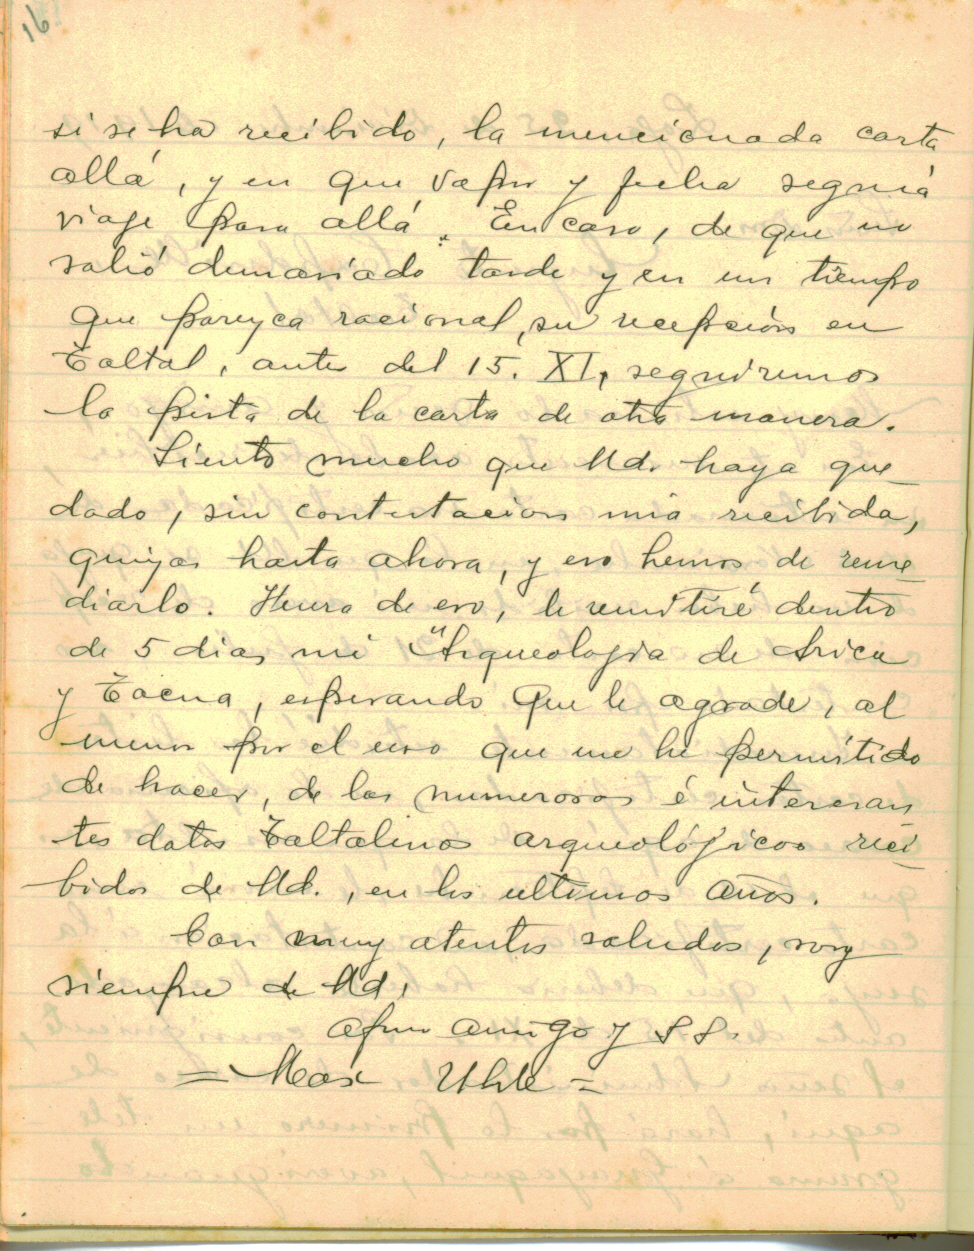 16
si se ha recibido, la mencionada carta
allá, y en que vapor y fecha seguiá
viaje para allá. En caso, de que no
salió demasiado tarde y en un tiempo
que pareyca racional, su recepción en
Taltal, antes del 15. XI, seguiremos
la pista de la carta de otra manera.
Siento mucho que Ud. haya que_
dado, sin contestacion mia recibida,
quiyas hasta ahora, y eso hemos de reme_
diarlo. Fuera de eso, le remitiré dentro
de 5 dias mi "Arqueologia de Arica
y Tacna, esperando que le agrade, al
menos por el uso que me he permitido
de hacer, de los numerosos é interesan
tes datos Taltalinos arqueológicos reci_
bidos de Ud., en los ultimos años.
Con muy atentos saludos, soy
siempre de Ud,
afmo amigo y S S.
= Max Uhle =